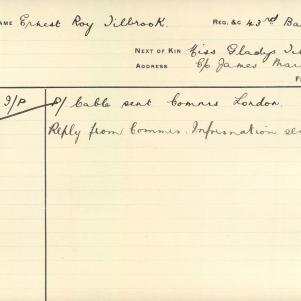 NAME Ernest Roy Tilbrook. REG. &C 43rd Ba
NEXT OF KIN Miss Gladys
ADDRESS C/o James
I/P P/ Cable sent Commrs London.
Reply from Commrs. Information